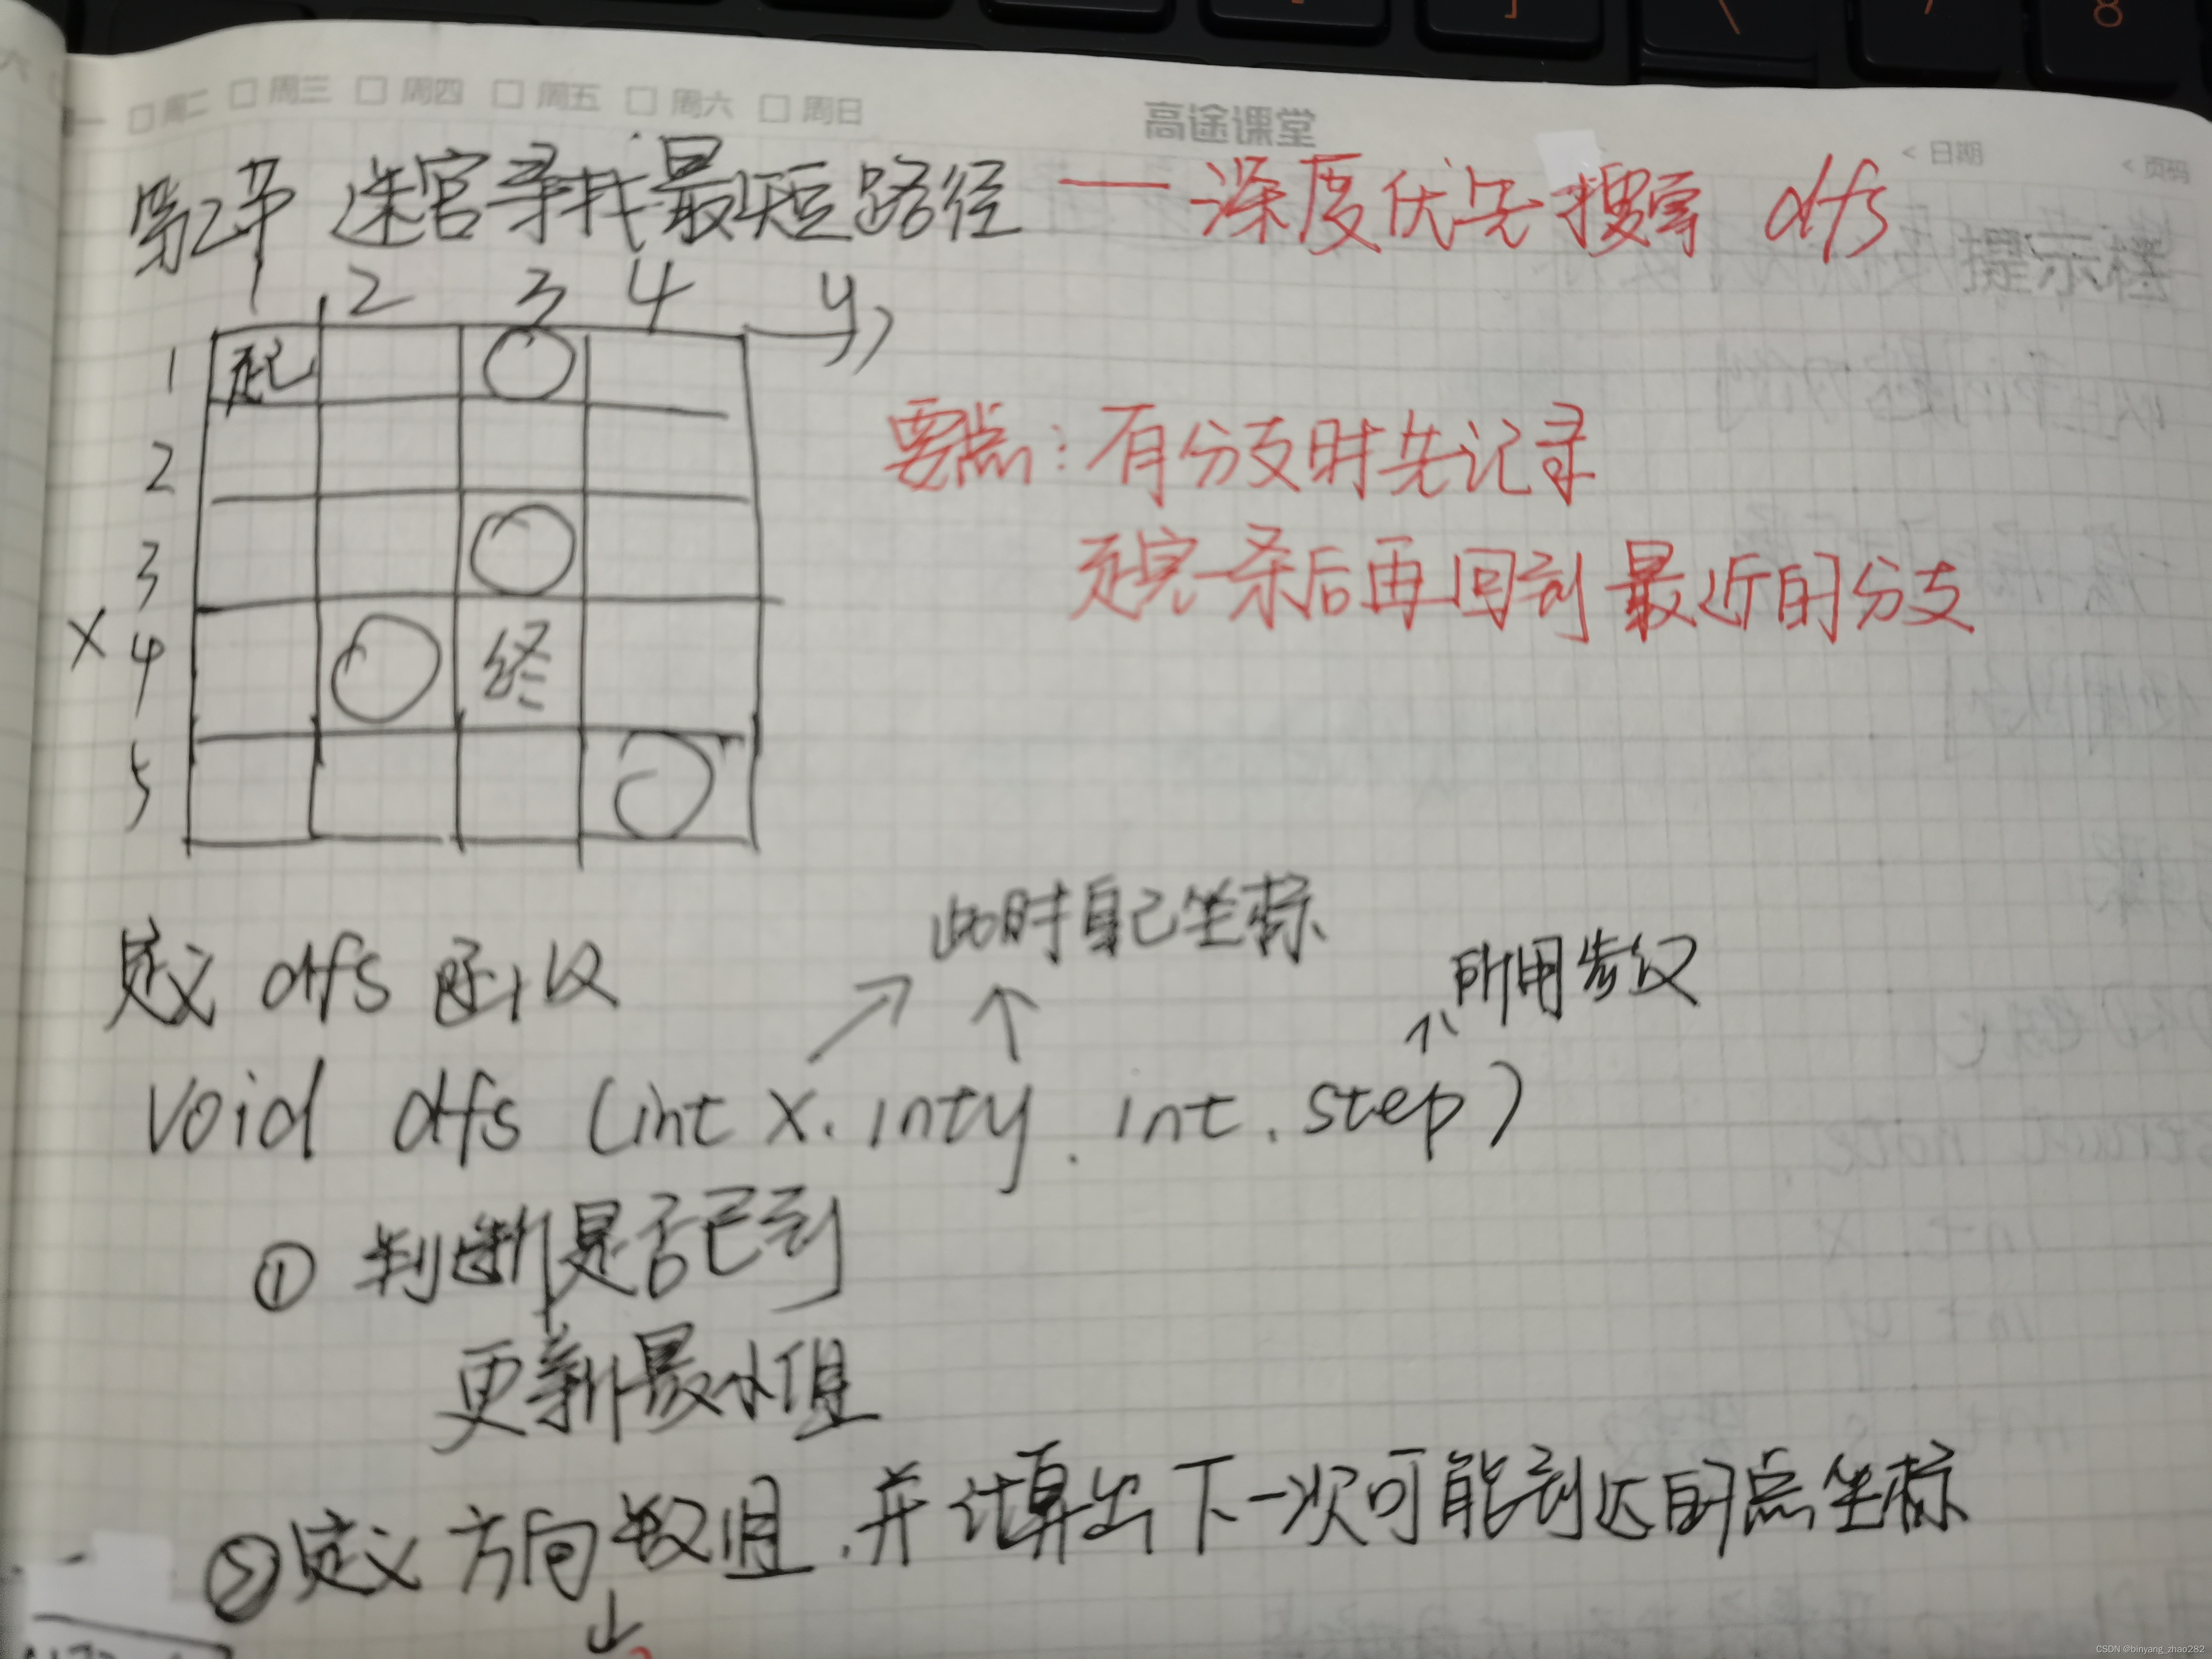 □周二 □周三 □周四 □周五 □周六 □周日
高途课堂
<日期
<页码
第2节 迷宫寻找最短路径 — 深度优先搜索 dfs
提示栏
1 2 3 4 y
1 起
2
3
x 4 终
5
要点:有分支时先记录
走完一条后再回到最近的分支
此时自己坐标
定义 dfs 函数
所用步数
void dfs (int x. int y. int. step)
① 判断是否已到
更新最小值
②定义方向数组.并计算出下一次可能到达的点坐标
CSDN @binyang_zhao282